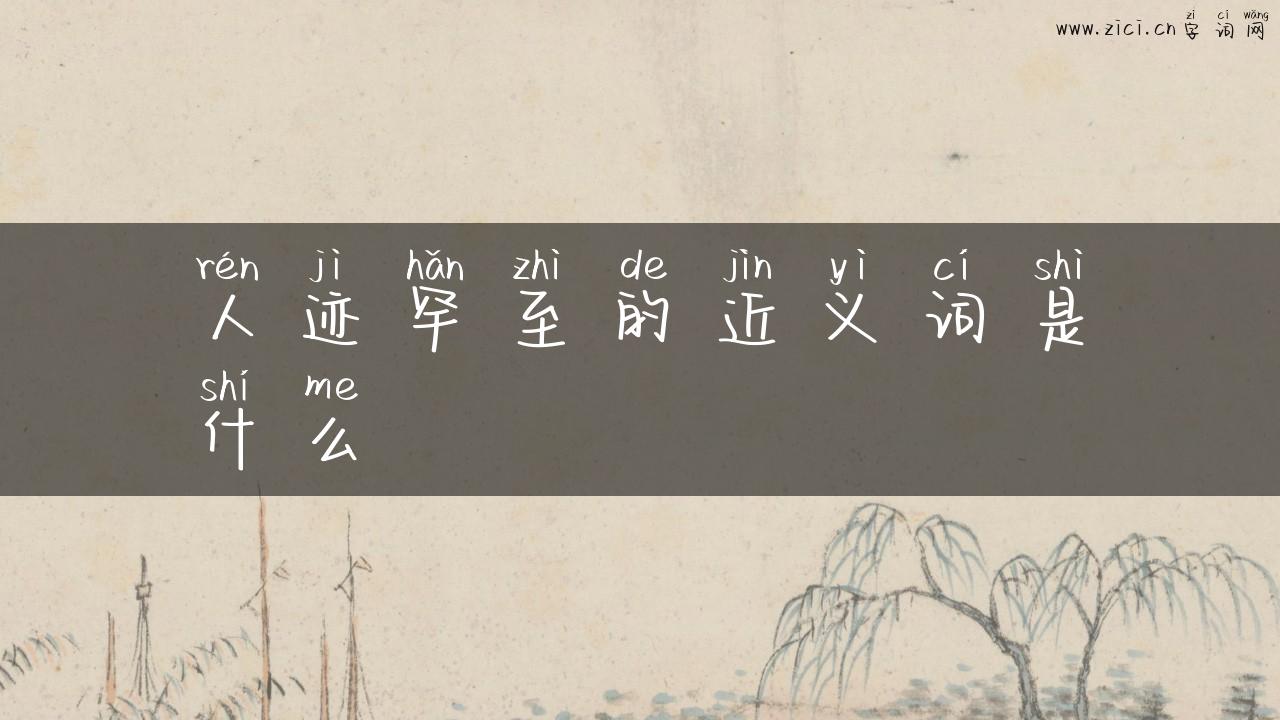 zì cí wǎng
www.zici.cn 字 词 网
rén jì hǎn zhì de jìn yì cí shì
人 迹 罕 至 的 近 义 词 是
shí me
什 么